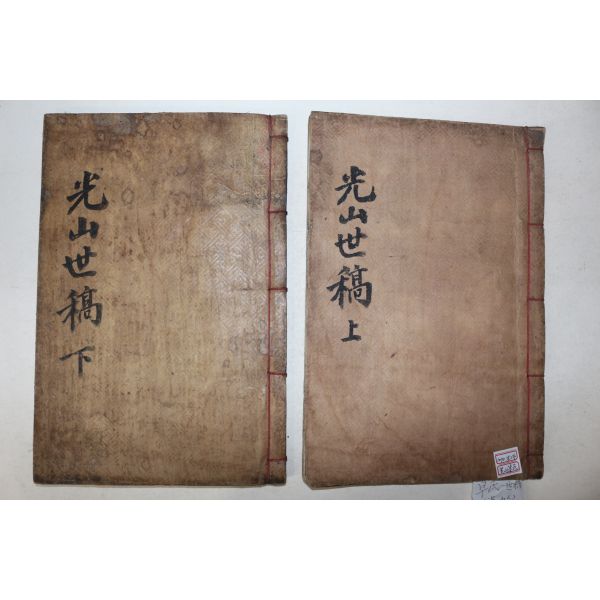 光山世稿
上
光山世稿
下